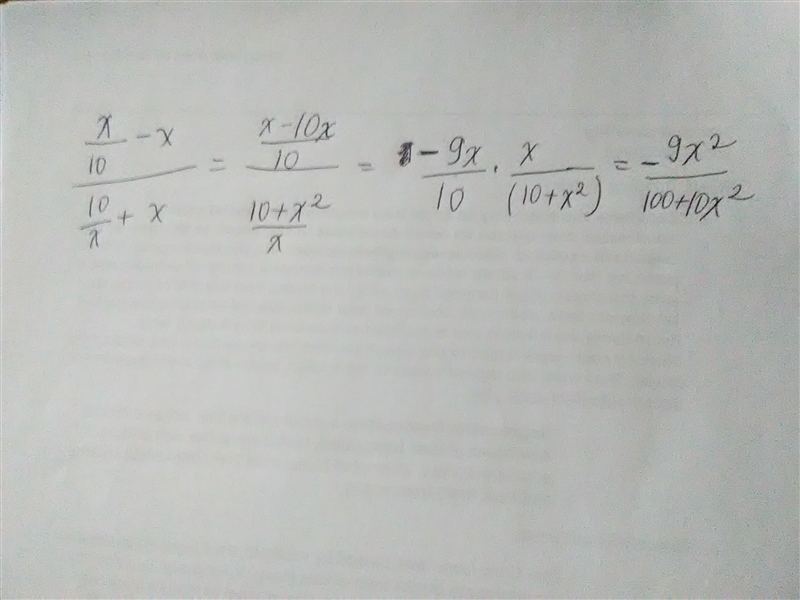 \frac{\frac{x}{10} - x}{\frac{10}{x} + x} = \frac{\frac{x - 10x}{10}}{\frac{10 + x^2}{x}} = \frac{-9x}{10} \cdot \frac{x}{(10 + x^2)} = \frac{-9x^2}{100 + 10x^2}